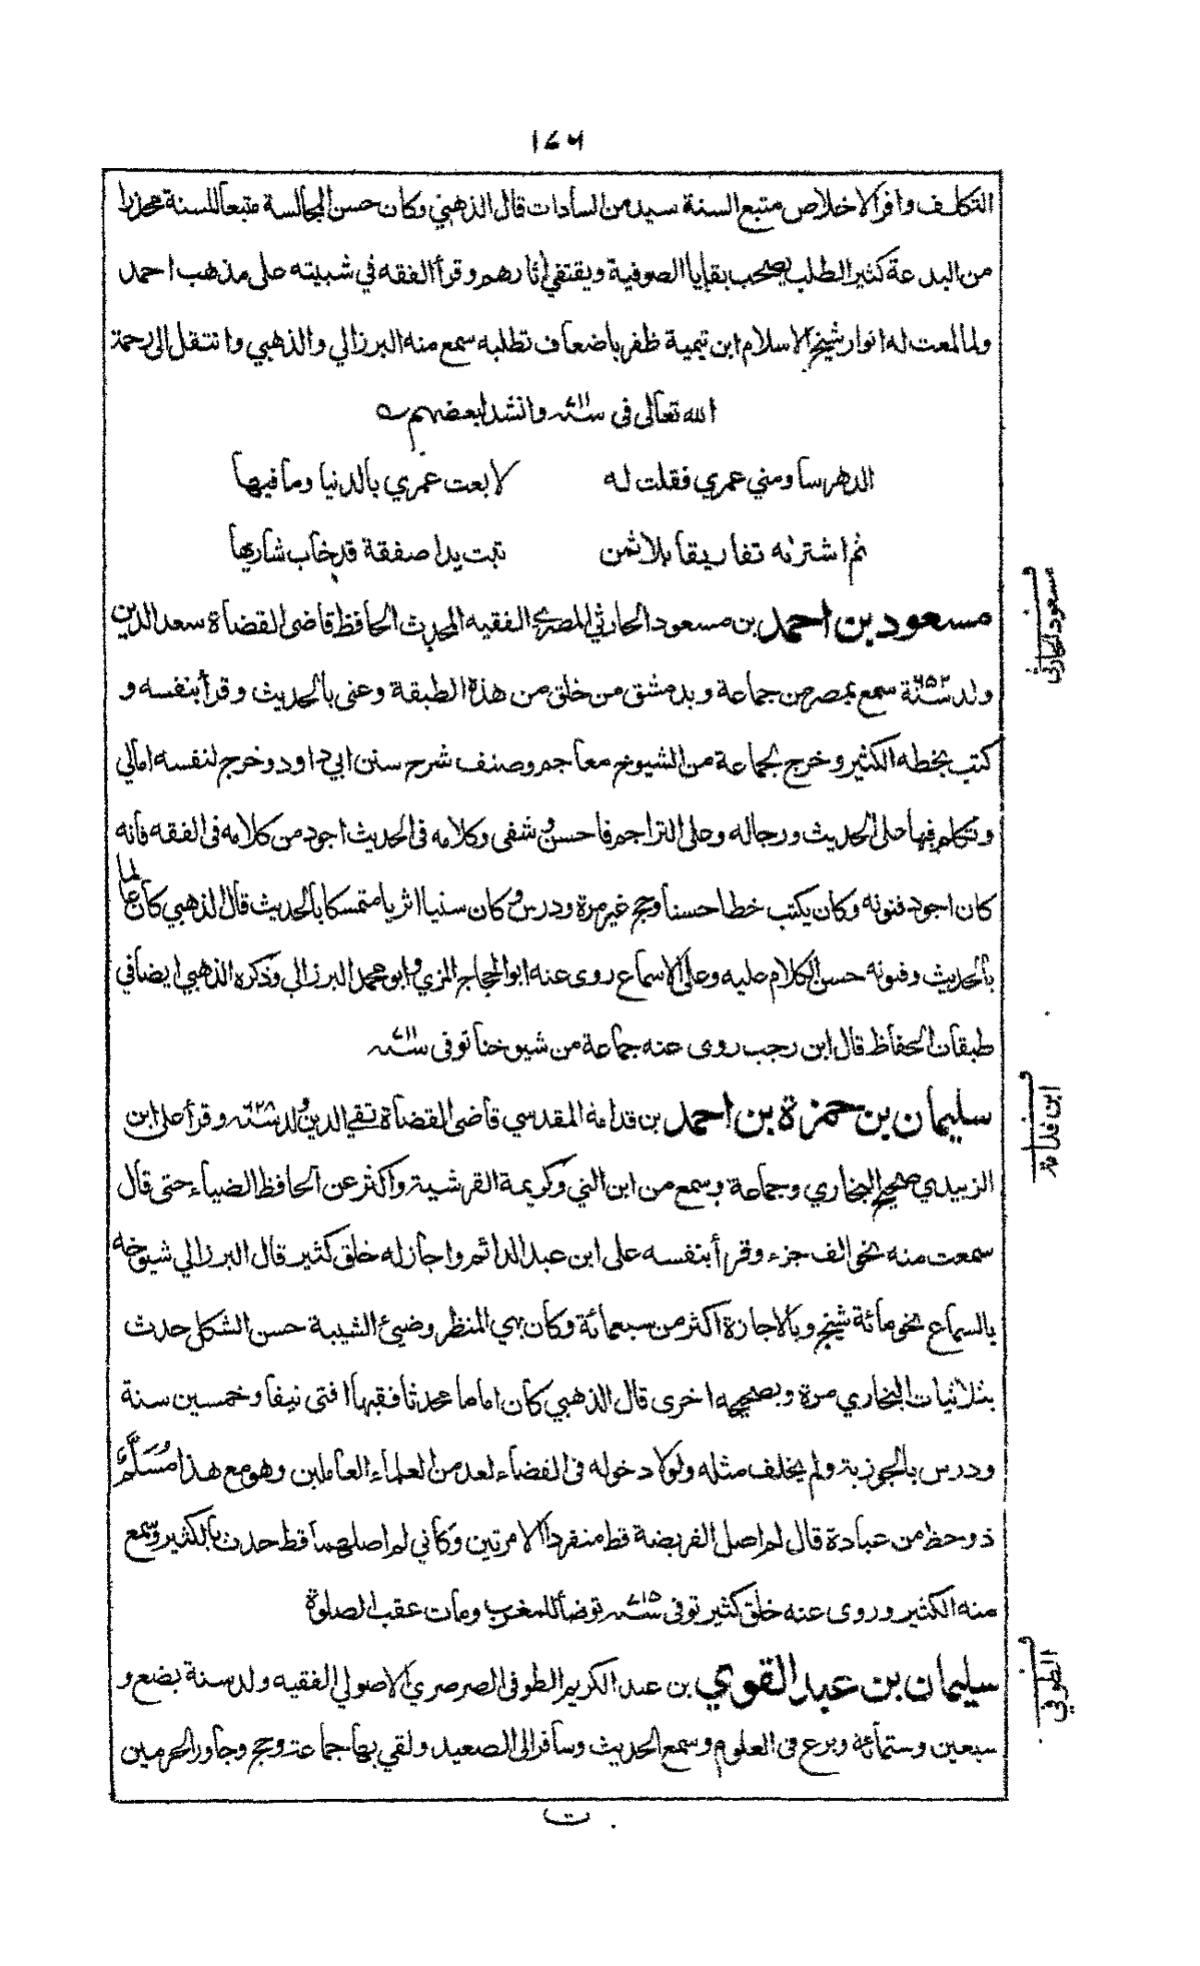 ١٤٦
التكلف وافر الاخلاص متبع السنة سيد من السادات قال الذهبي وكان حسن المجالسة متبعا للسنة محذرا
من البدعة كثير الطلب يصحب بقايا الصوفية ويقتفي آثارهم وقرأ الفقه في شبيبته على مذهب احمد
ولما لمعت له انوار شيخ الاسلام ابن تيمية ظفر باضعاف تطلبه سمع منه البرزالي والذهبي وانتقل الى رحمة
الله تعالى في سنة ٧١١ وانشد لبعضهم
الدهر ساومني عمري فقلت له لا بعت عمري بالدنيا وما فيها
ثم اشتراه تفاريقا بلا ثمن تبت يدا صفقة قد خاب شاريها
مسعود بن احمد بن مسعود الحارثي المصري الفقيه المحدث الحافظ قاضى القضاة سعد الدين
ولد سنة ٦٥٢ سمع بمصر من جماعة وبدمشق من خلق من هذة الطبقة وعنى بالحديث وقرأ بنفسه و
كتب بخطه الكثير وخرج لجماعة من الشيوخ معاجم وصنف شرح سنن ابي داود وخرج لنفسه امالي
وتكلم فيها على الحديث ورجاله وعلى التراجم فاحسن وشفى وكلامه فى الحديث اجود من كلامه فى الفقه فانه
كان اجود فنونه وكان يكتب خطا حسنا وحج غير مرة ودرس وكان سنيا اثريا متمسكا بالحديث قال الذهبي كان عالما
بالحديث وفنونه حسن الكلام عليه وعلى الاسماع روى عنه ابو الحجاج المزي وابو محمد البرزالي وذكره الذهبي ايضا في
طبقات الحفاظ قال ابن رجب روى عنه جماعة من شيوخنا توفى سنة ٧١١
سليمان بن حمزة بن احمد بن قدامة المقدسي قاضى القضاة تقي الدين ولد سنة ٦٢٨ وقرأ على ابن
الزبيدي صحيح البخاري وجماعة وسمع من ابن التي وكريمة القرشية واكثر عن الحافظ الضياء حتى قال
سمعت منه نحو الف جزء وقرأ بنفسه على ابن عبد الدائم واجاز له خلق كثير قال البرزالي شيوخه
بالسماع نحو مائة شيخ وبالاجازة اكثر من سبعمائة وكان بهي المنظر وضيئ الشيبة حسن الشكل حدث
بثلاثيات البخاري مرة وبصحيحه اخرى قال الذهبي كان اماما محدثا فقيها افتى نيفا وخمسين سنة
ودرس بالجوزية ولم يخلف مثله ولولا دخوله فى القضاء لعد من العلماء العاملين وهو مع هذا مُسَلَّمٌ
ذو حظ من عبادة قال لم اصل الفريضة قط منفردا الا مرتين وكأني لم اصلهما قط حدث بالكثير وسمع
منه الكثير وروى عنه خلق كثير توفى سنة ٧١٥ توضأ للمغرب ومات عقب الصلوة
سليمان بن عبد القوي بن عبد الكريم الطوفى الصرصري الاصولي الفقيه ولد سنة بضع و
سبعين وستمائة وبرع فى العلوم وسمع الحديث وسافر الى الصعيد ولقي بها جماعة وحج وجاور الحرمين
ت
مسعود الحارثي
ابن قدامة
الطوفي